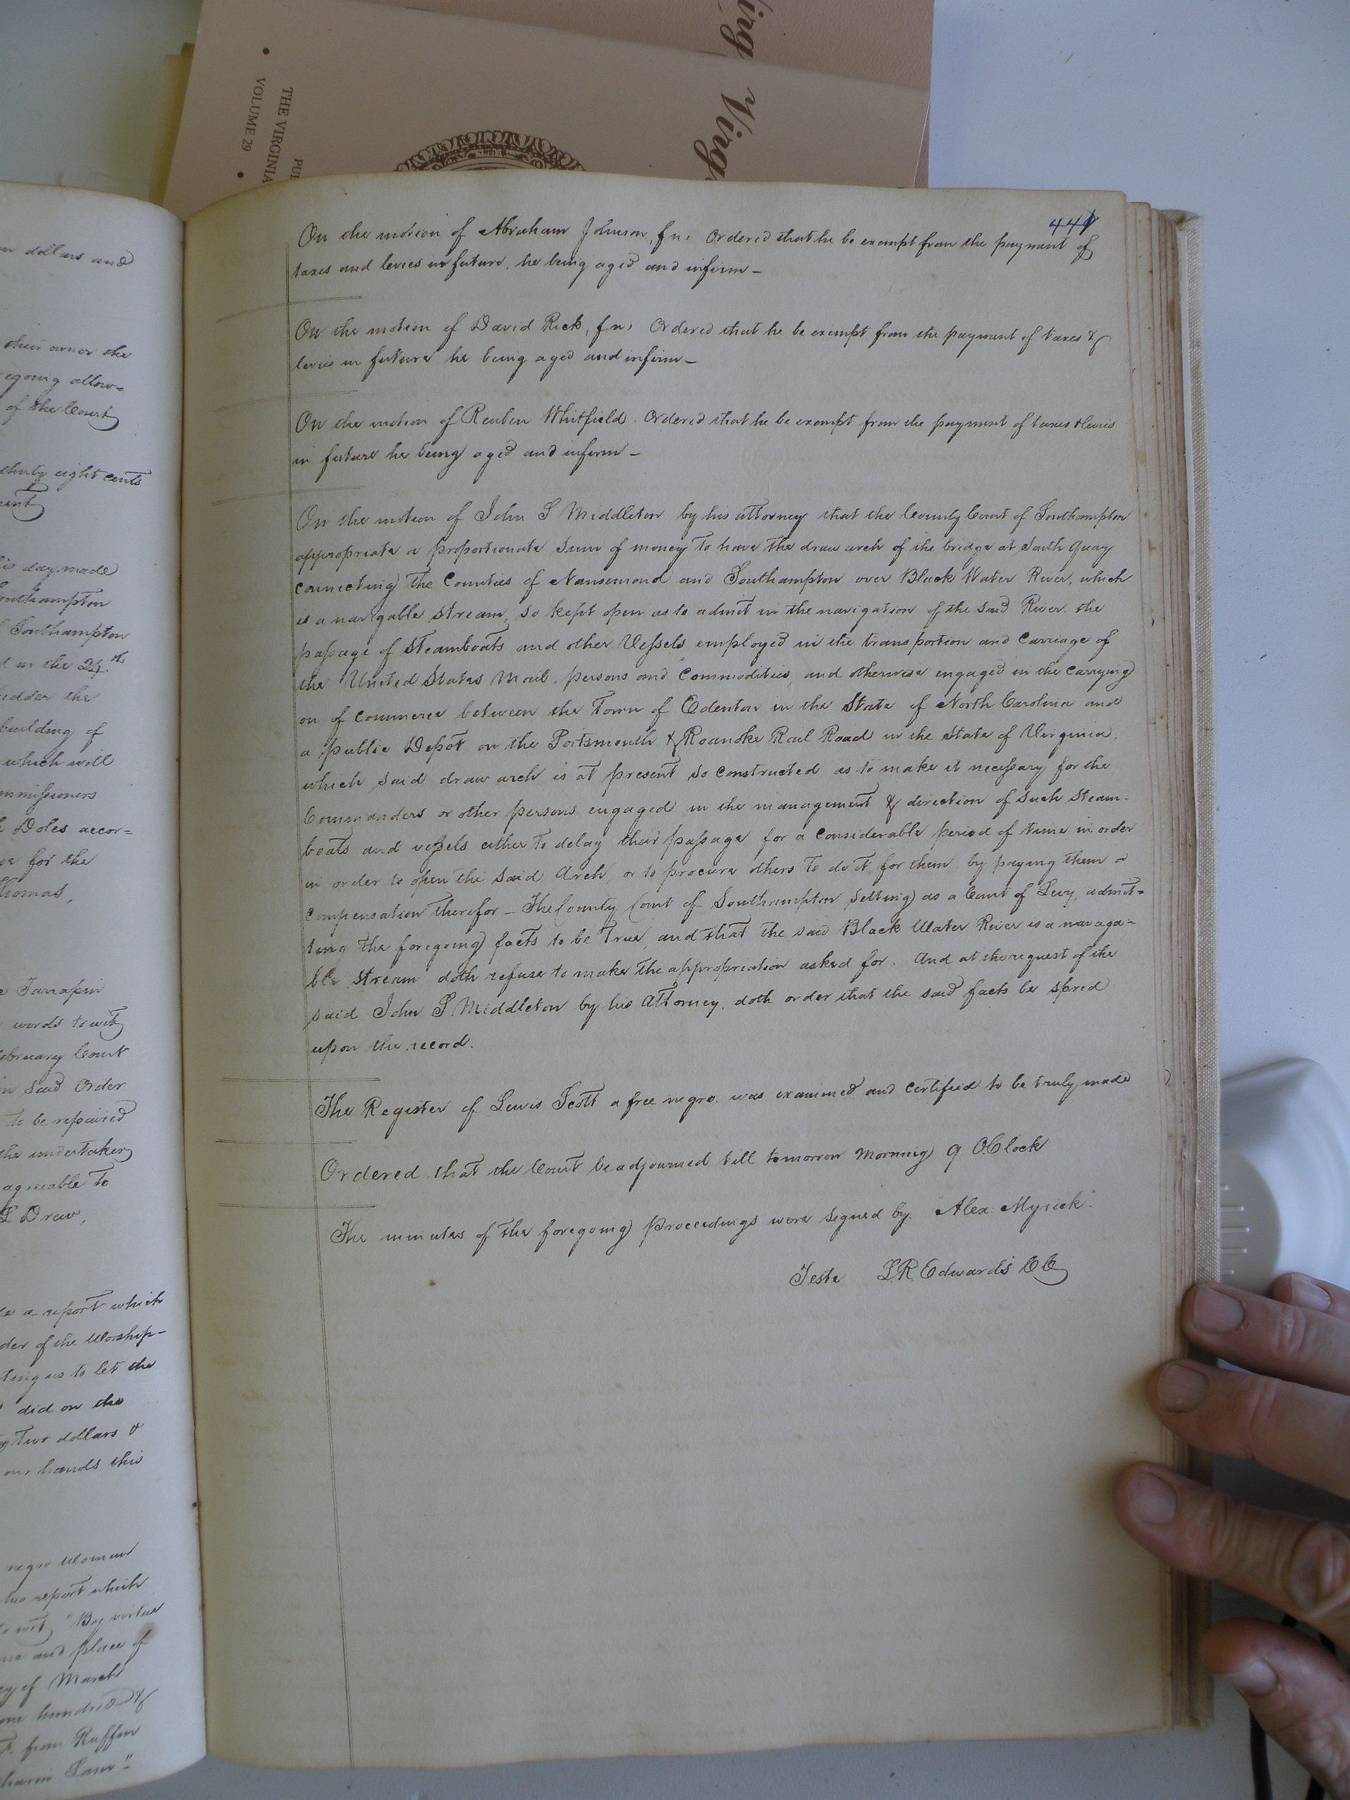 Virg
Virg
THE VIRGINIA
VOLUME 29
441
On the motion of Abraham Johnson, fn, Ordered that he be exempt from the payment of
taxes and levies in future, he being aged and infirm—
On the motion of David Rick, fn, Ordered that he be exempt from the payment of taxes &
levies in future he being aged and infirm—
On the motion of Reuben Whitfield. Ordered that he be exempt from the payment of taxes & levies
in future he being aged and infirm—
On the motion of John S Middleton by his attorney that the County Court of Southampton
appropriate a proportionate sum of money to have the draw arch of the bridge at South Quay
connecting the Counties of Nansemond and Southampton over Black Water River, which
is a navigable stream, so kept open as to admit in the navigation of the said River, the
passage of Steamboats and other Vessels employed in the transportion and carriage of
the United States Mail, persons and Commodities, and otherwise engaged in the carrying
on of commerce between the Town of Edenton in the State of North Carolina and
a public Depot on the Portsmouth & Roanoke Rail Road in the State of Virginia,
which said draw arch is at present so constructed as to make it necessary for the
Commanders or other persons engaged in the management & direction of such Steam-
boats and vessels either to delay their passage for a considerable period of time in order
in order to open the said Arch, or to procure others to do it for them by paying them a
compensation therefor— The County Court of Southampton setting as a Court of Levy, admit=
ting the foregoing facts to be True, and that the said Black Water River is a navaga=
ble stream doth refuse to make the appropriation asked for. And at the request of the
said John S Middleton by his Attorney, doth order that the said facts be spred
upon the record.
The Register of Lewis Scott a free negro, was examined and certified to be truly made
Ordered that the Court be adjourned till tomorrow Morning 9 OClock
The minutes of the foregoing proceedings were signed by Alex Myrick.
Teste LR Edwards CC
dollars and
their owner the
egoing allow=
of the Court
thirty eight cents
cent
day made
Southampton
Southampton
in the 24th
bidder the
building of
which will
mmissioners
Doles accor=
for the
Thomas,
Tarrapin
words to wit
ebruary Court
in said Order
to be repaired
the undertaker
agreeable to
Drew,
a report which
der of the Worship-
ting us to let the
did on the
Two dollars &
our hands this
negro Woman
his report which
to wit, "By virtue
and place of
of March
one hundred &
from Ruffin